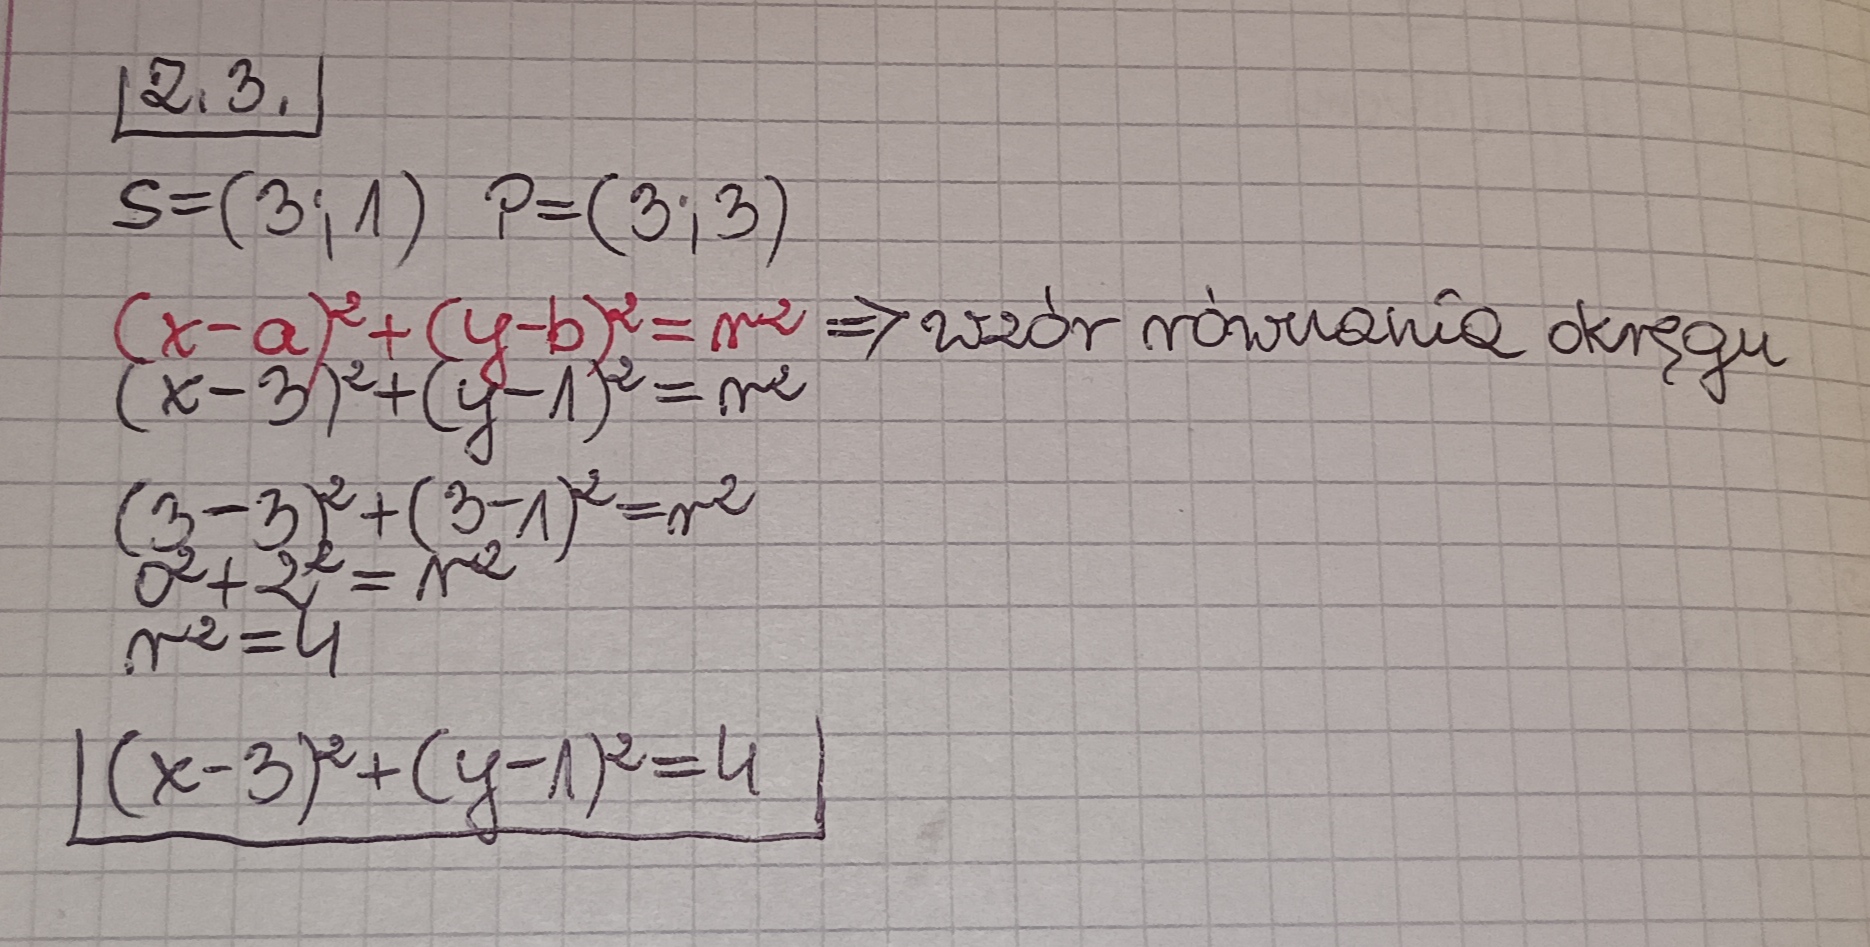 2.3.
S=(3;1) P=(3;3)
(x-a)²+(y-b)²=r² => wzór równania okręgu
(x-3)²+(y-1)²=r²
(3-3)²+(3-1)²=r²
0²+2²=r²
r²=4
(x-3)²+(y-1)²=4